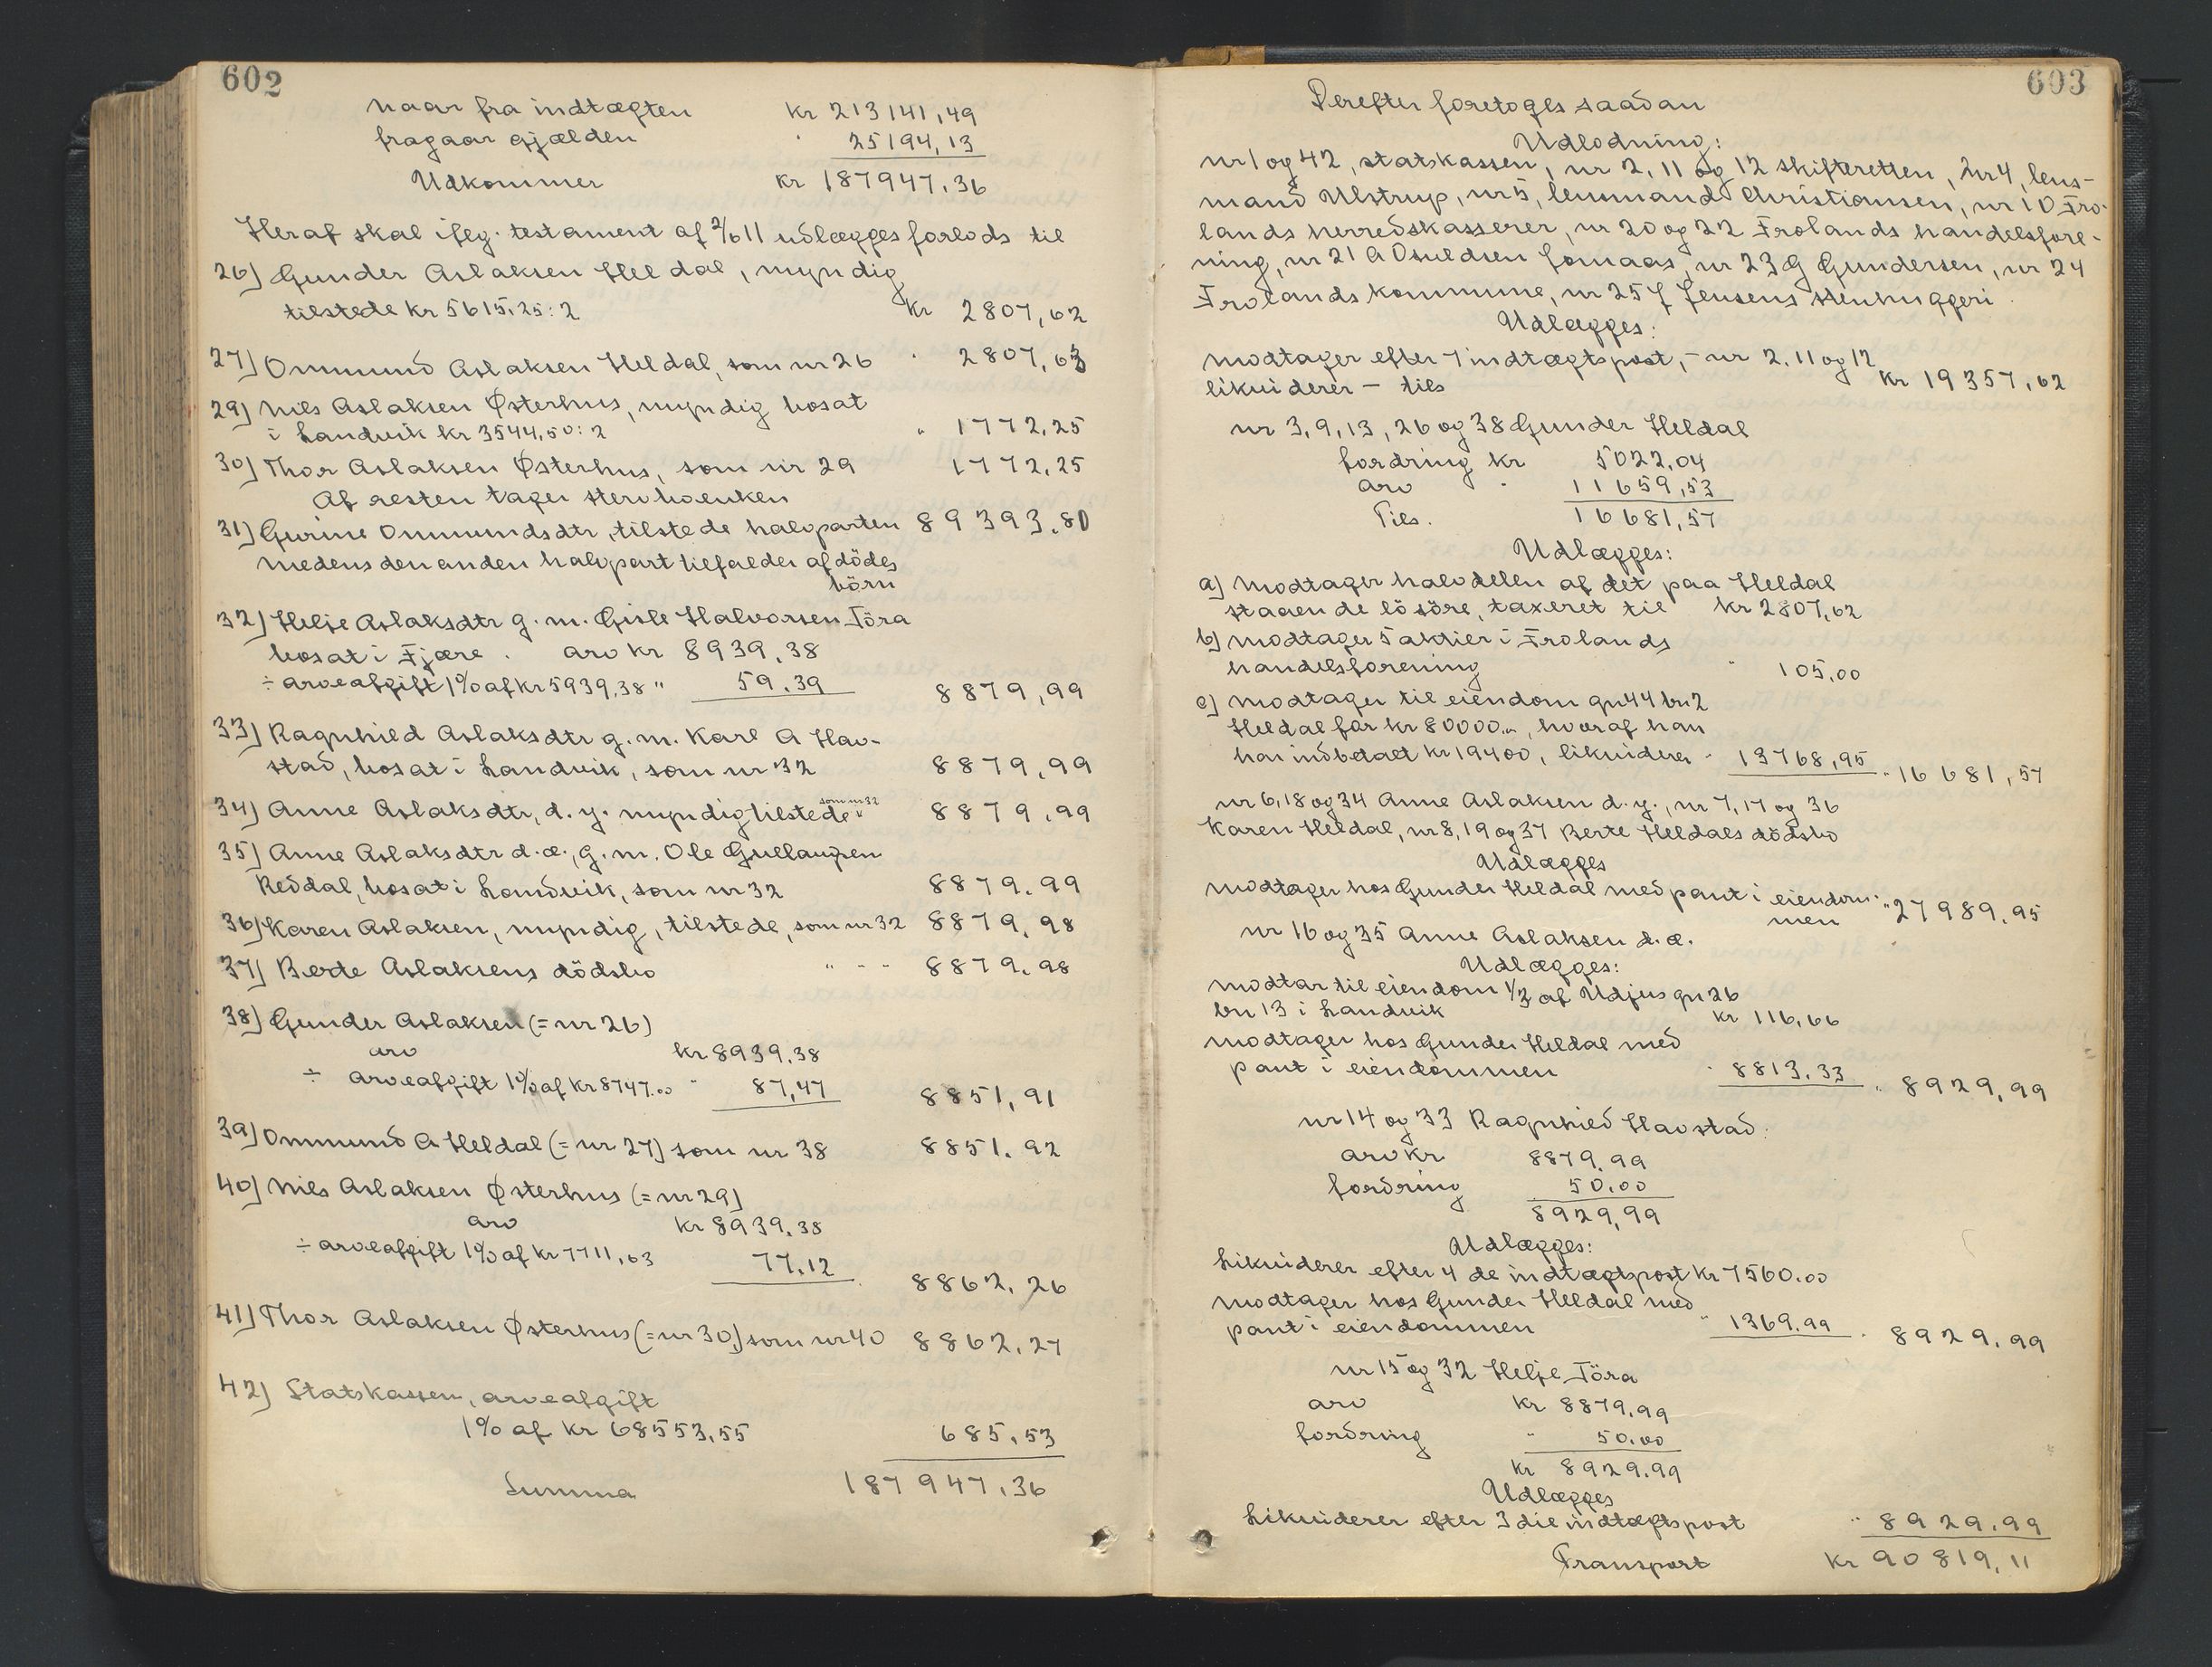 602
naar fra indtægten kr 213141,49
fragaar gjælden " 25194,13
Udkommer kr 187947,36
Heraf skal ifølg. testament af 2/6 11 udlægges forlods til
26) Gunder Aslaksen Heldal, myndig
tilstede kr 5615,25:2 kr 2807,62
27) Ommund Aslaksen Heldal, som nr 26 " 2807,63
29) Nils Aslaksen Østerhus, myndig bosat
i Landvik kr 3544,50:2 " 1772,25
30) Thor Aslaksen Østerhus, som nr 29 1772,25
Af resten tager stervboenken
31) Gurine Ommundsdtr, tilstede halvparten 89393,80
medens den anden halvpart tilfalder afdödes
börn
32) Helje Aslaksdtr g.m. Gisle Halvorsen Töra
bosat i Fjære. arv kr 8939,38
÷ arveafgift 1% af kr 5939,38 " 59,39 8879,99
33) Ragnhild Aslaksdtr g.m. Karl A Hav-
stad, bosat i Landvik, som nr 32 8879,99
34) Anne Aslaksdtr, d.y. myndig tilstede som nr 32 8879,99
35) Anne Aslaksdtr d.æ., g.m. Ole Gullaugsen
Reddal, bosat i Landvik, som nr 32 8879,99
36) Karen Aslaksen, myndig, tilstede, som nr 32 8879,98
37) Berte Aslaksens dödsbo " - - 8879,98
38) Gunder Aslaksen (= nr 26)
arv kr 8939,38
÷ arveafgift 1% af kr 8747.00 " 87,47 8851,91
39) Ommund A Heldal (= nr 27) som nr 38 8851,92
40) Nils Aslaksen Østerhus (= nr 29)
arv kr 8939,38
÷ arveafgift 1% af kr 7711,63 77,12 8862,26
41) Thor Aslaksen Østerhus (= nr 30) som nr 40 8862,27
42) Statskassen, arveafgift
1% af kr 68553,55 685,53
Summa 187947,36
603
Derefter foretoges saadan
Udlodning:
nr 1 og 42, statskassen, nr 2, 11 og 12 skifteretten, nr 4, lens-
mand Ulstrup, nr 5, lensmand Christiansen, nr 10 Fro-
lands herredskasserer, nr 20 og 22 Frolands handelsfore-
ning, nr 21 A Osuldsen Lomaas, nr 23 G Gundersen, nr 24
Frolands kommune, nr 25 J Jensens stenhuggeri.
Udlægges:
modtager efter 7 indtægtspost, - nr 2, 11 og 12
likviderer - tils kr 19357,62
nr 3, 9, 13, 26 og 38 Gunder Heldal
fordring kr 5022,04
arv " 11659,53
Tils. 16681,57
Udlægges:
a) modtager halvdelen af det paa Heldal
staaende lösöre, taxeret til kr 2807,62
b) modtager 5 aktier i Frolands
handelsforening " 105,00
c) modtager til eiendom gn 44 bn 2
Heldal for kr 80000.", hvoraf han
har indbetalt kr 19400, likviderer " 13768,95 " 16681,57
nr 6, 18 og 34 Anne Aslaksen d.y., nr 7, 17 og 36
Karen Heldal, nr 8, 19 og 37 Berte Heldals dödsbo
Udlægges
modtager hos Gunder Heldal med pant i eiendom-
men " 27989,95
nr 16 og 35 Anne Aslaksen d.æ.
Udlægges:
modtar til eiendom 1/3 af Udjus gn 26
bn 13 i Landvik kr 116,66
modtager hos Gunder Heldal med
pant i eiendommen " 8813,33 " 8929,99
nr 14 og 33 Ragnhild Havstad:
arv kr 8879,99
fordring 50,00
8929,99
Udlægges:
Likviderer efter 4 de indtægtspost kr 7560.00
modtager hos Gunder Heldal med
pant i eiendommen " 1369,99 " 8929,99
nr 15 og 32 Helje Töra
arv kr 8879,99
fordring " 50.00
kr 8929,99
Udlægges
Likviderer efter 3die indtægtspost " 8929,99
Transport kr 90819,11